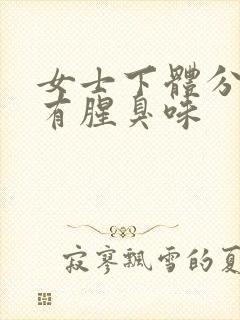 女士下體分
有腥臭味
寂寥飄雪的夏